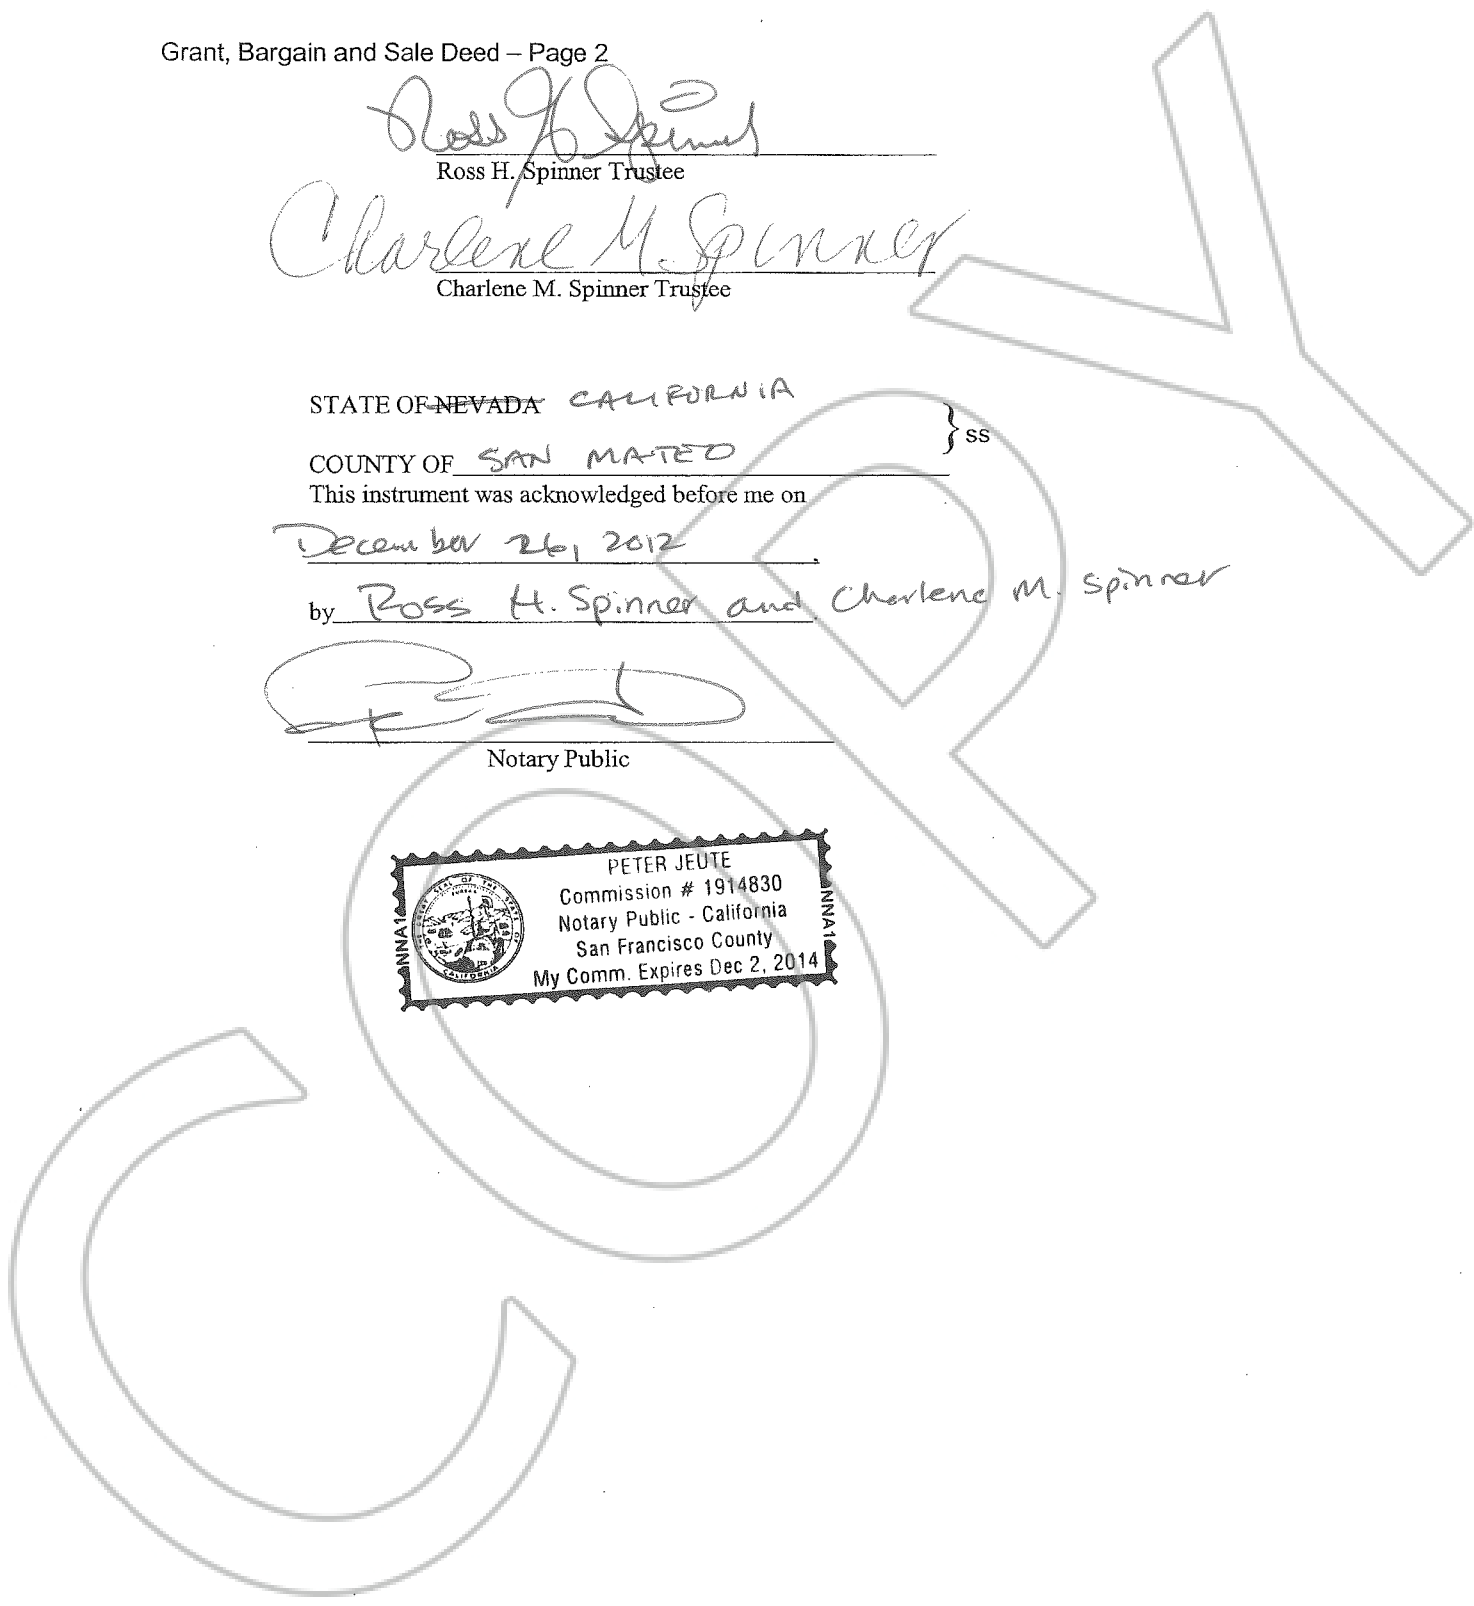 Grant, Bargain and Sale Deed – Page 2
Ross H Spinner
Ross H. Spinner Trustee
Charlene M. Spinner
Charlene M. Spinner Trustee
STATE OF NEVADA CALIFORNIA
} ss
COUNTY OF SAN MATEO
This instrument was acknowledged before me on
December 26, 2012
by Ross H. Spinner and Charlene M. Spinner
Notary Public
PETER JEUTE
Commission # 1914830
Notary Public - California
San Francisco County
My Comm. Expires Dec 2, 2014
NNA1
NNA1
THE GREAT SEAL OF THE STATE OF CALIFORNIA
EUREKA
COPY